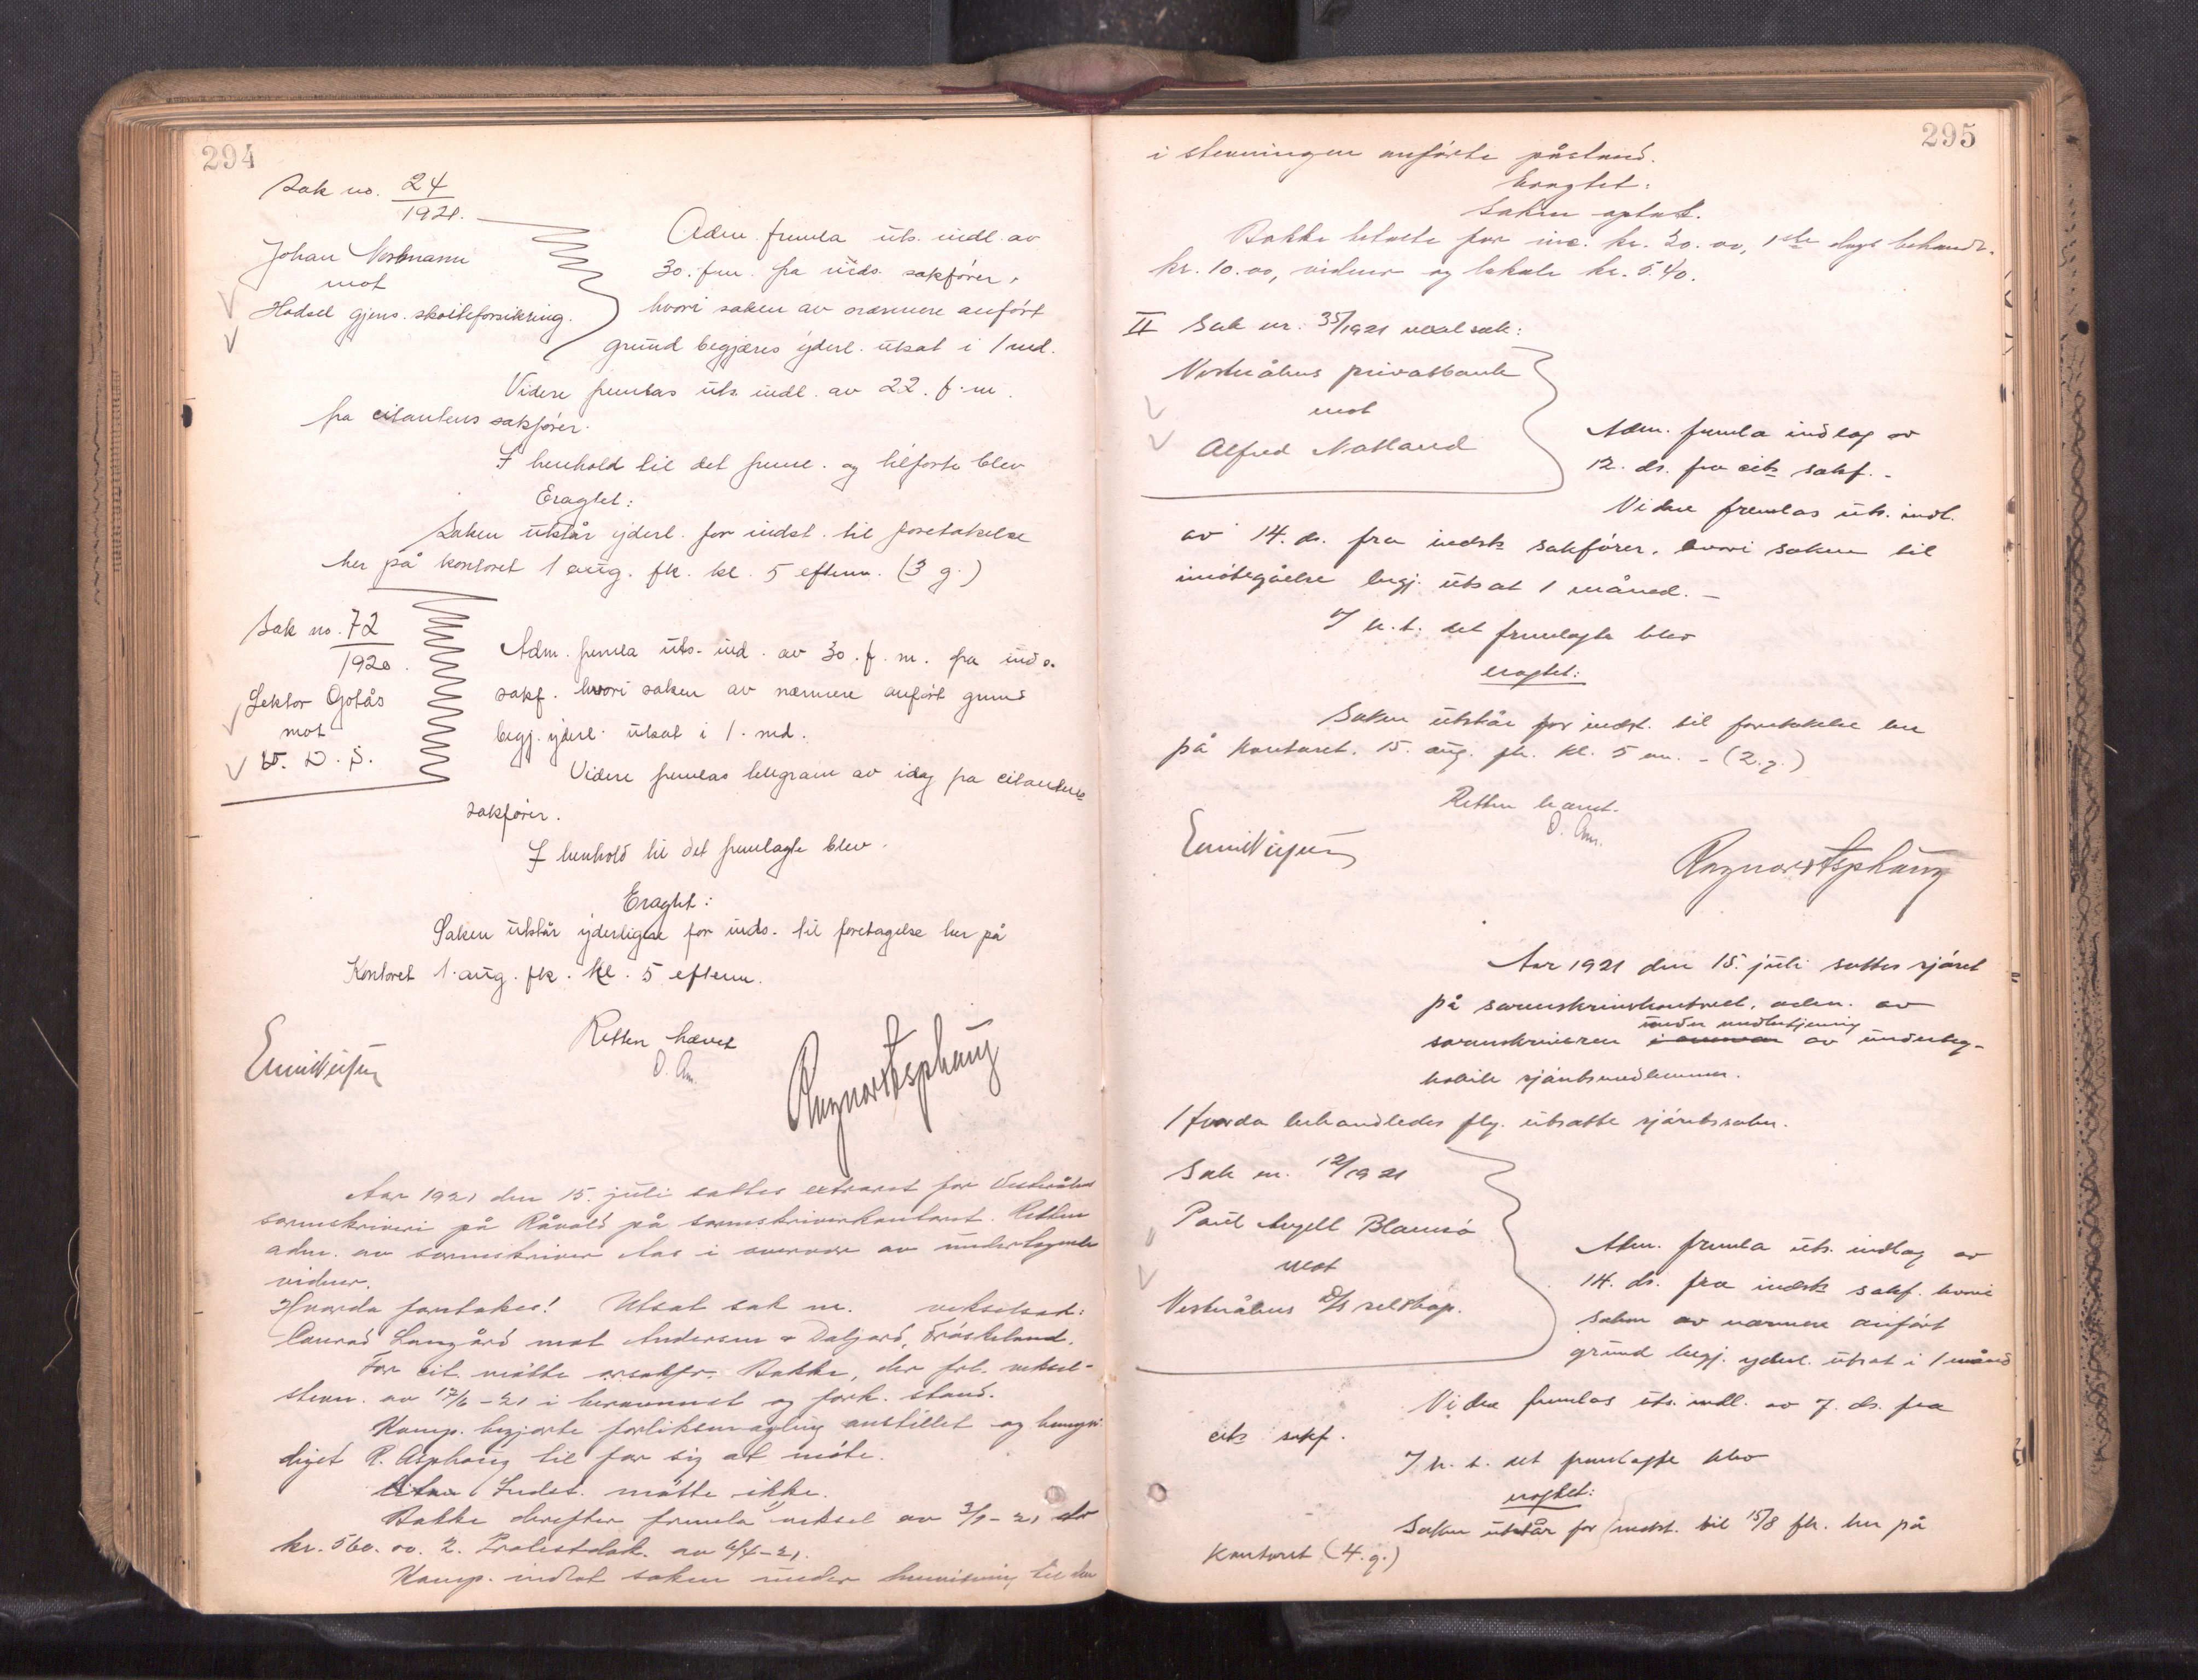 294
Sak no. 24/1921.
Johan Normann
mot
Hadsel gjens. skøiteforsikring.
Adm. fremla uts. indl. av
30. f.m. fra inds. sakfører,
hvori saken av nærmere anført
grund begjæres yderl. utsat i 1 md.
Videre fremlas uts. indl. av 22. f.m.
fra citantens sakfører.
I henhold til det freml. og tilførte blev
Eragtet:
Saken utstår yderl. for indst. til foretakelse
her på kontoret 1 aug. fk. kl. 5 efterm. (3 g.)
Sak no. 72/1920.
Lektor Gotås
mot
V. D. S.
Adm. fremla uts. ind. av 30. f. m. fra inds.
sakf. hvori saken av nærmere anført grund
begj. yderl. utsat i 1. md.
Videre fremlas telegram av idag fra citantens
sakfører.
I henhold til det fremlagte blev.
Eragtet:
Saken utstår yderligere for inds. til foretagelse her på
Kontoret 1. aug. fk. kl. 5 efterm.
Retten hævet
Ragnar Asphaug
Aar 1921 den 15. juli sattes extraret for Vesterålens
sorenskriveri på Råvold på sorenskriverkontoret. Retten
adm. av sorenskriver Aas i overvær av undertegnede
vidner.
Hvorda foretokes! Utsat sak nr. vekselsak:
Conrad Langård mot Andersen & Daljord, Frøskeland.
For cit. møtte orsakfr. Bakke, der frl. veksel-
stevn. av 17/6-21 i berammet og fork. stand.
Komp. begjærte forliksmægling anstillet og bemyn-
diget R. Asphaug til for sig at møte.
Indst. møtte ikke.
Bakke derefter fremla 1) veksel av 3/1-21 str
kr. 560.00. 2. Protestdok. av 6/4-21.
Komp. indlot saken under henvisning til den
295
i stevningen anførte påstand.
Eragtet:
Saken optat.
Bakke betalte for inc. kr. 20.00, 1ste dags behandl.
kr. 10.00, vidner og lokale kr. 5.40.
II Sak nr. 35/1921 vexelsak:
Vesterålens privatbank
mot
Alfred Natland
Adm. fremla indlag av
12. ds. fra cits sakf. -
Videre fremlas uts. indl.
av 14. ds. fra indsts sakfører, hvori saken til
imøtegåelse begj. utsat 1 måned. -
I h. t. det fremlagte blev
eragtet:
Saken utstår for indst. til foretakelse her
på kontoret. 15. aug. fk. kl. 5 em. - (2.g.)
Retten hævet.
Ragnar Asphaug
Aar 1921 den 15. juli sattes sjøret
på sorenskriverkontoret, adm. av
under medbetjening
sorenskriveren i overvær av underteg-
nede sjøretsmedlemmer.
Hvorda behandledes flg. utsatte sjøretssaker.
Sak nr. 12/1921
Paul Angell Blamsø
mot
Vesterålens D/S selskap.
Adm. fremla uts. indlag av
14. ds. fra indsts sakf. hvori
saken av nærmere anført
grund begj. yderl. utsat i 1 måned
Videre fremlas uts. indl. av 7. ds. fra
cits sakf.
I h. t. det fremlagte blev
eragtet:
Saken utstår for indst. til 15/8 fk. her på
Kontoret (4.g.)